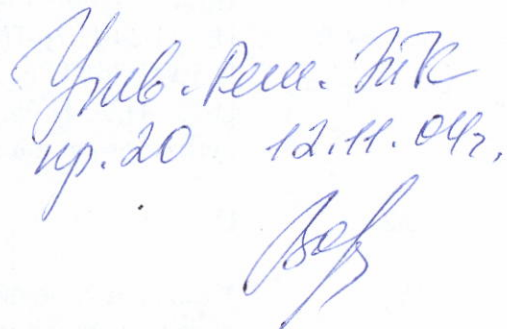 Утв. Реш. ЭТК
пр. 20 12.11.04г.